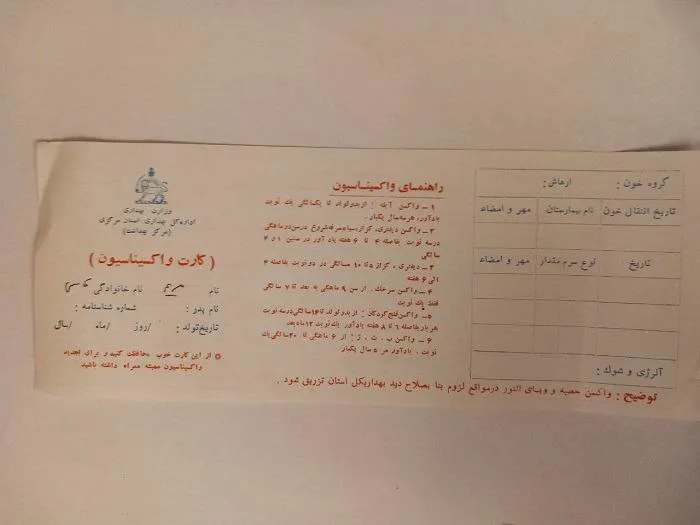 وزارت بهداری
اداره کل بهداری استان مرکزی
(مرکز بهداشت)
( کارت واکسیناسیون )
نام نام خانوادگی
نام پدر : شماره شناسنامه :
تاریخ تولد : /روز /ماه /سال
از این کارت خوب محافظت کنید و برای تجدید
واکسیناسیون همیشه همراه داشته باشید
راهنمای واکسیناسیون
۱ـ واکسن آبله : از بدو تولد تا یکسالگی یک نوبت
یادآور، هرسه سال یکبار.
۲ـ واکسن دیفتری، کزاز، سیاه سرفه شروع درسن دوماهگی
درسه نوبت بفاصله ۴ تا ۶ هفته یاد آور در سنین ۱ و ۴
سالگی
۳ـ دیفتری ، کزاز ۵ تا ۱۰ سالگی در دو نوبت بفاصله ۴
الی ۶ هفته
۴ـ واکسن سرخک . از سن ۹ ماهگی به بعد تا ۷ سالگی
فقط یک نوبت
۵ـ واکسن فلج کودکان : از بدو تولد تا ۱۶ سالگی درسه نوبت
هر بار بفاصله ۶ تا ۸ هفته یادآور یک نوبت ۱۲ ماه بعد
۶ـ واکسن ب . ث . ژ : از ۶ ماهگی تا ۲۰ سالگی یک
نوبت . یادآور هر ۵ سال یکبار
گروه خون : ارهاش :
تاریخ انتقال خون نام بیمارستان مهر و امضاء
تاریخ نوع سرم مقدار مهر و امضاء
آلرژی و شوک :
توضیح : واکسن حصبه و وبای التور درمواقع لزوم بنا بصلاح دید بهداریکل استان تزریق شود .